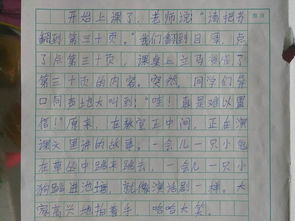 开始上课了，老师说："请把书
翻到第三十页。"我们翻到目录，点
了点第三十页，课桌上马
第三十页的内容。突然，同学们异
口同声地大叫到："哇！真是难以置
信！"原来，在教室正中间，正在演
课文里讲的故事。一会儿一只小兔
在草丛中跳来跳去，一会儿一只小
狗跳进池塘，就像演话剧一样。大
家高兴地拍着手，哈哈大笑。